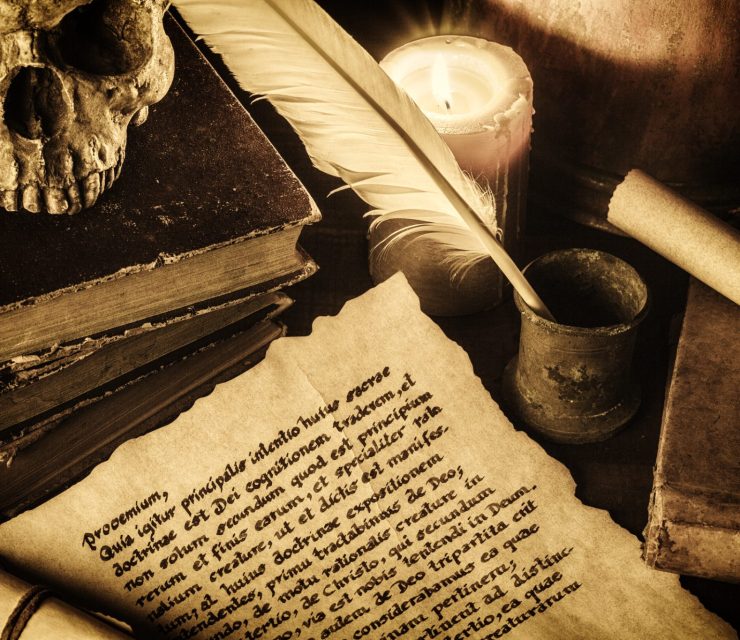 Prooemium,
Quia igitur principalis intentio huius sacrae
doctrinae est Dei cognitionem tradere, et
non solum secundum quod est principium
rerum et finis earum, et specialiter
nalium creature, ut el dictis est manifes-
tum; at huius doctrinae expositionem
tendentes, primu tractabimus de Deo;
undo, de motu rationalis creature in
ertio, de Christo, qui secundum
o, via est nobis tendendi in Deum.
autem de Deo tripartita erit
considerabamus ea quae
inam pertinent;
tinent ad distinc-
ertio, ea quae
creaturarum